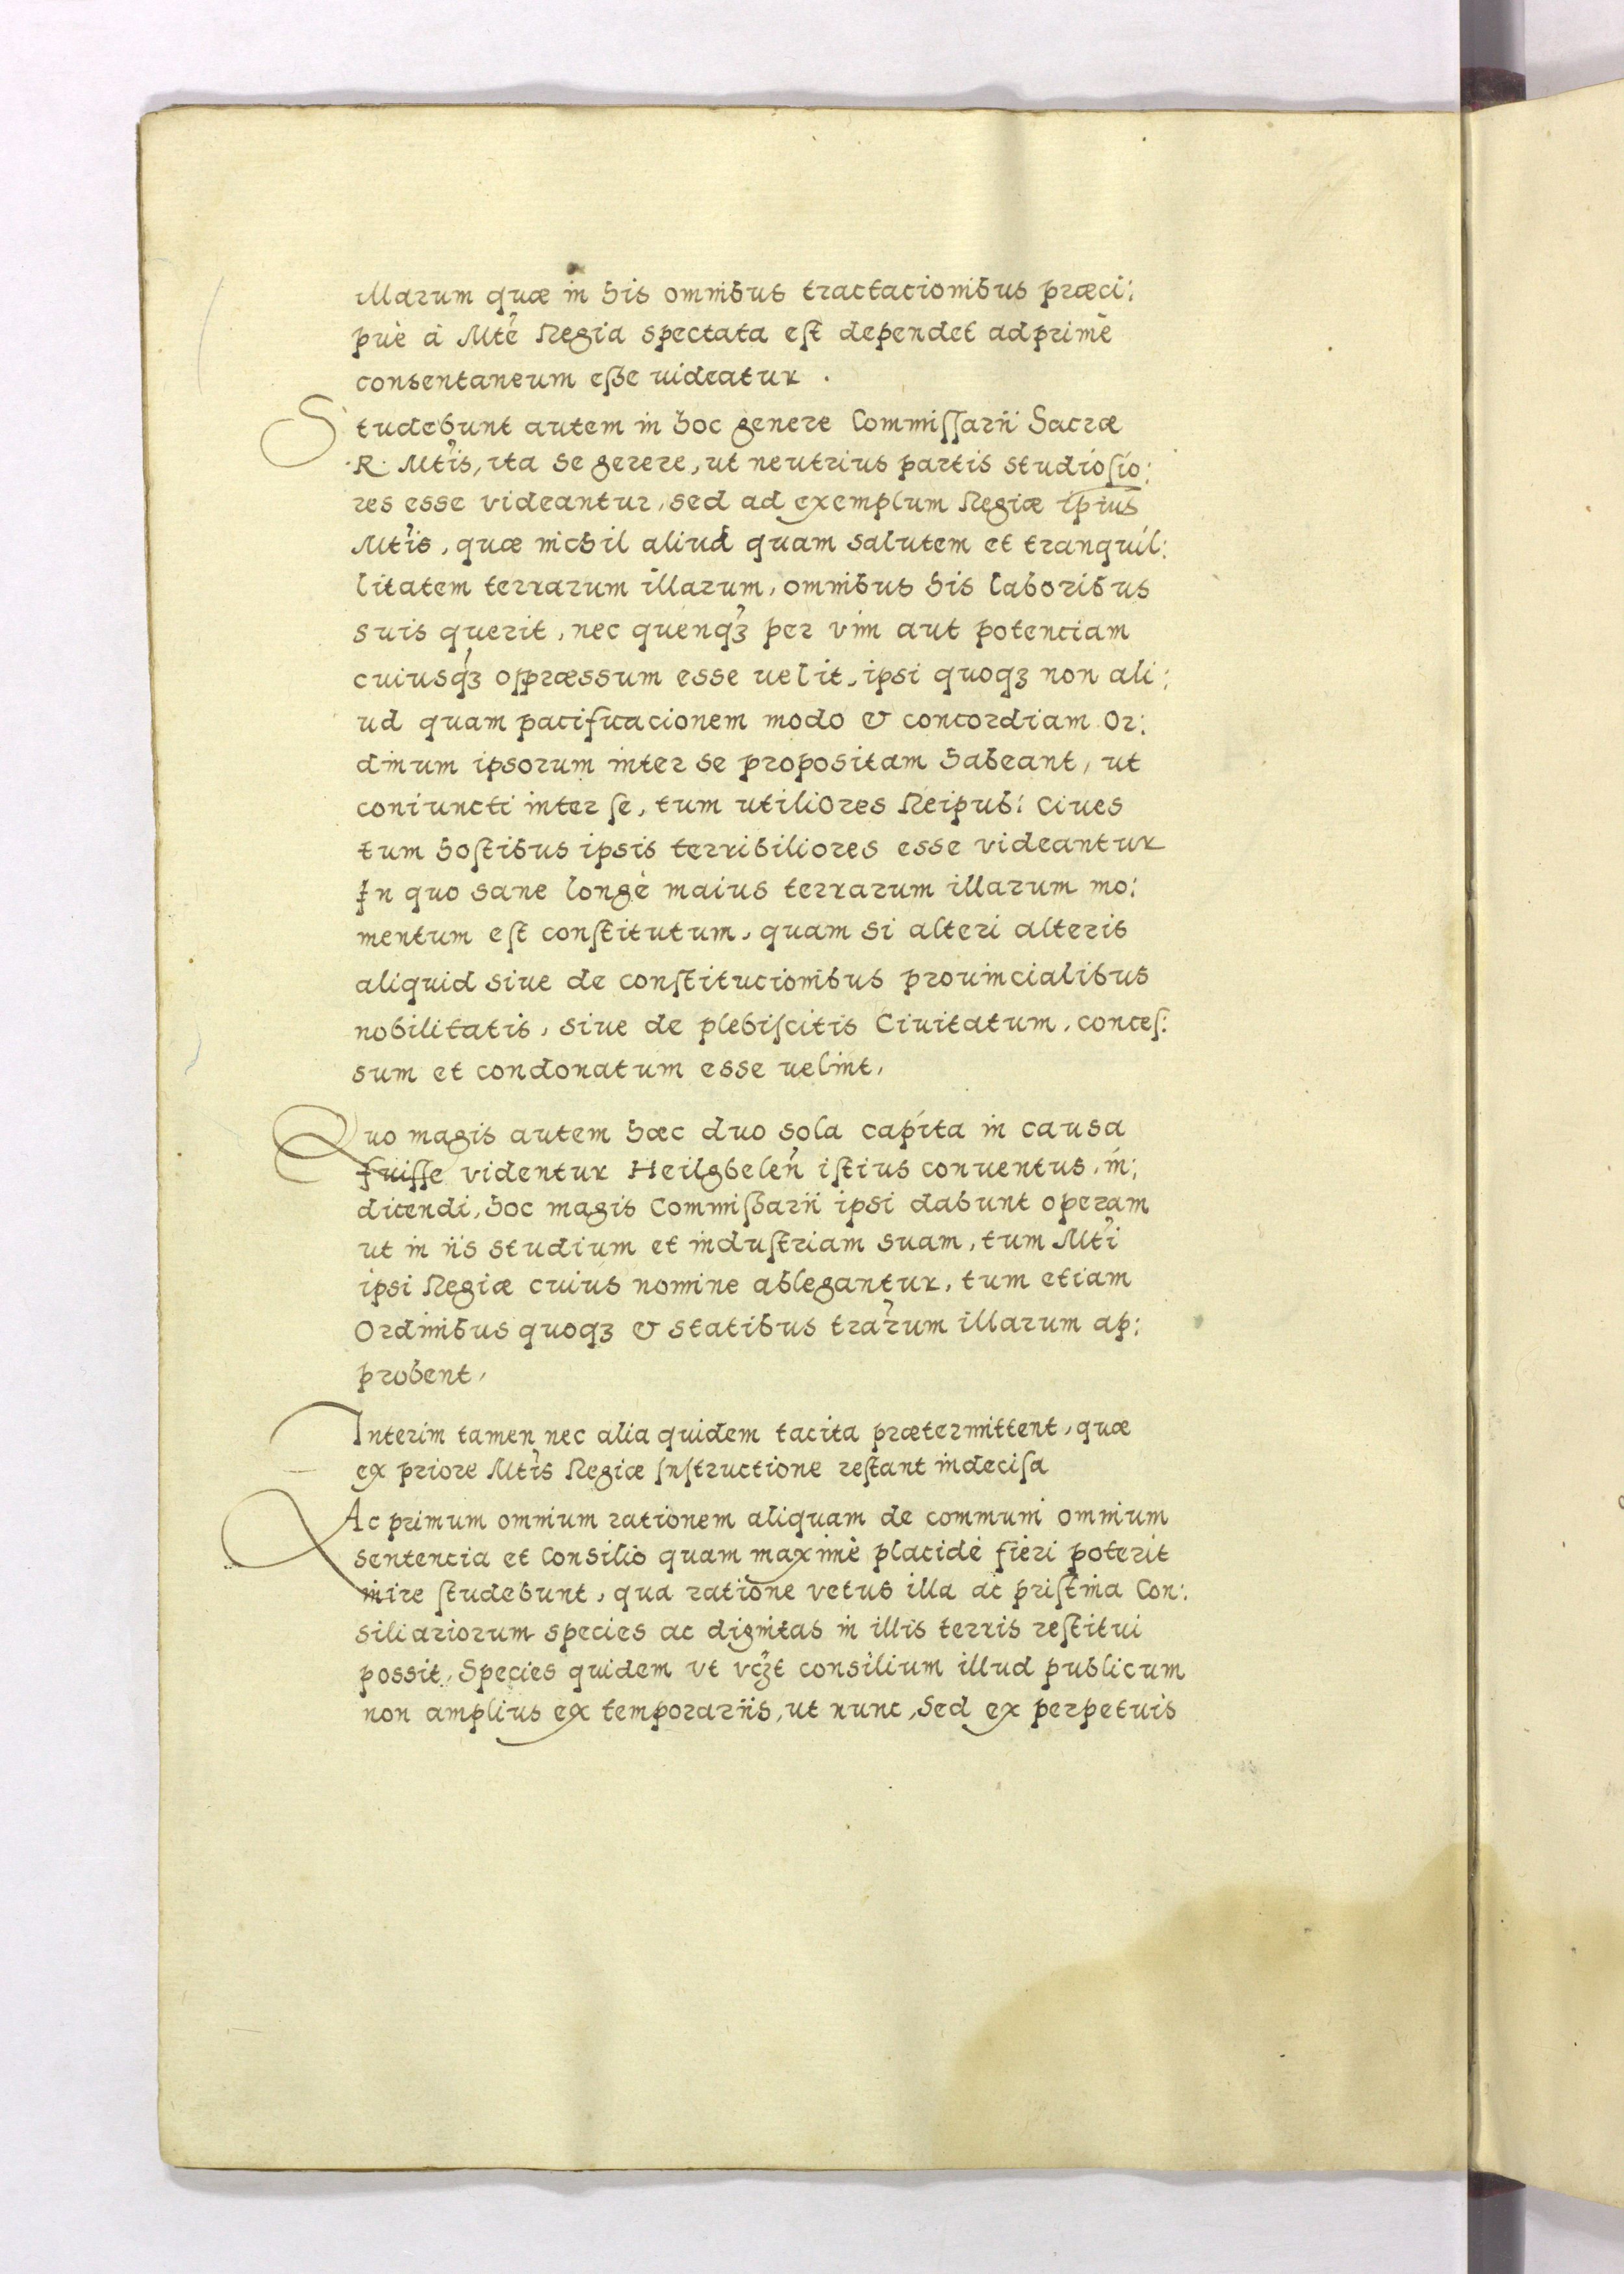 illarum quæ in his omnibus tractacionibus præci:
puè à Mte Regia spectata est dependet adprimè
consentaneum esse uideatur .
Studebunt autem in hoc genere Commissarii Sacræ
·R· Mtis, ita se gerere, ut neutrius partis studiosio:
res esse videantur, sed ad exemplum Regiæ ipius
Mtis, quæ nichil aliud quam salutem et tranquil:
litatem terrarum illarum, omnibus his laboribus
suis querit, nec quenqꝫ per vim aut potenciam
cuiusqꝫ oppræssum esse uelit, ipsi quoqꝫ non ali:
ud quam pacificacionem modo & concordiam Or:
dinum ipsorum inter se propositam habeant, ut
coniuncti inter se, tum utiliores Reipub: Ciues
tum hostibus ipsis terribiliores esse videantur
In quo sane longè maius terrarum illarum mo:
mentum est constitutum, quam si alteri alteris
aliquid siue de constitucionibus prouincialibus
nobilitatis, siue de plebiscitis Ciuitatum, conces:
sum et condonatum esse uelint,
Quo magis autem hæc duo sola capita in causa
fuisse videntur Heilgbelen istius conuentus, in:
dicendi, hoc magis Commissarii ipsi dabunt operam
ut in iis studium et industriam suam, tum Mti
ipsi Regiæ cuius nomine ablegantur, tum etiam
Ordinibus quoqꝫ & statibus trarum illarum ap:
probent,
Interim tamen nec alia quidem tacita prætermittent, quæ
ex priore Mtis Regiæ Instructione restant indecisa
Ac primum omnium rationem aliquam de communi omnium
sentencia et Consilio quam maximè placidè fieri poterit
inire studebunt, qua ratione vetus illa ac pristina Con:
siliariorum species ac dignitas in illis terris restitui
possit, Species quidem vt vꝫt consilium illud publicum
non amplius ex temporariis, ut nunc, Sed ex perpetuis